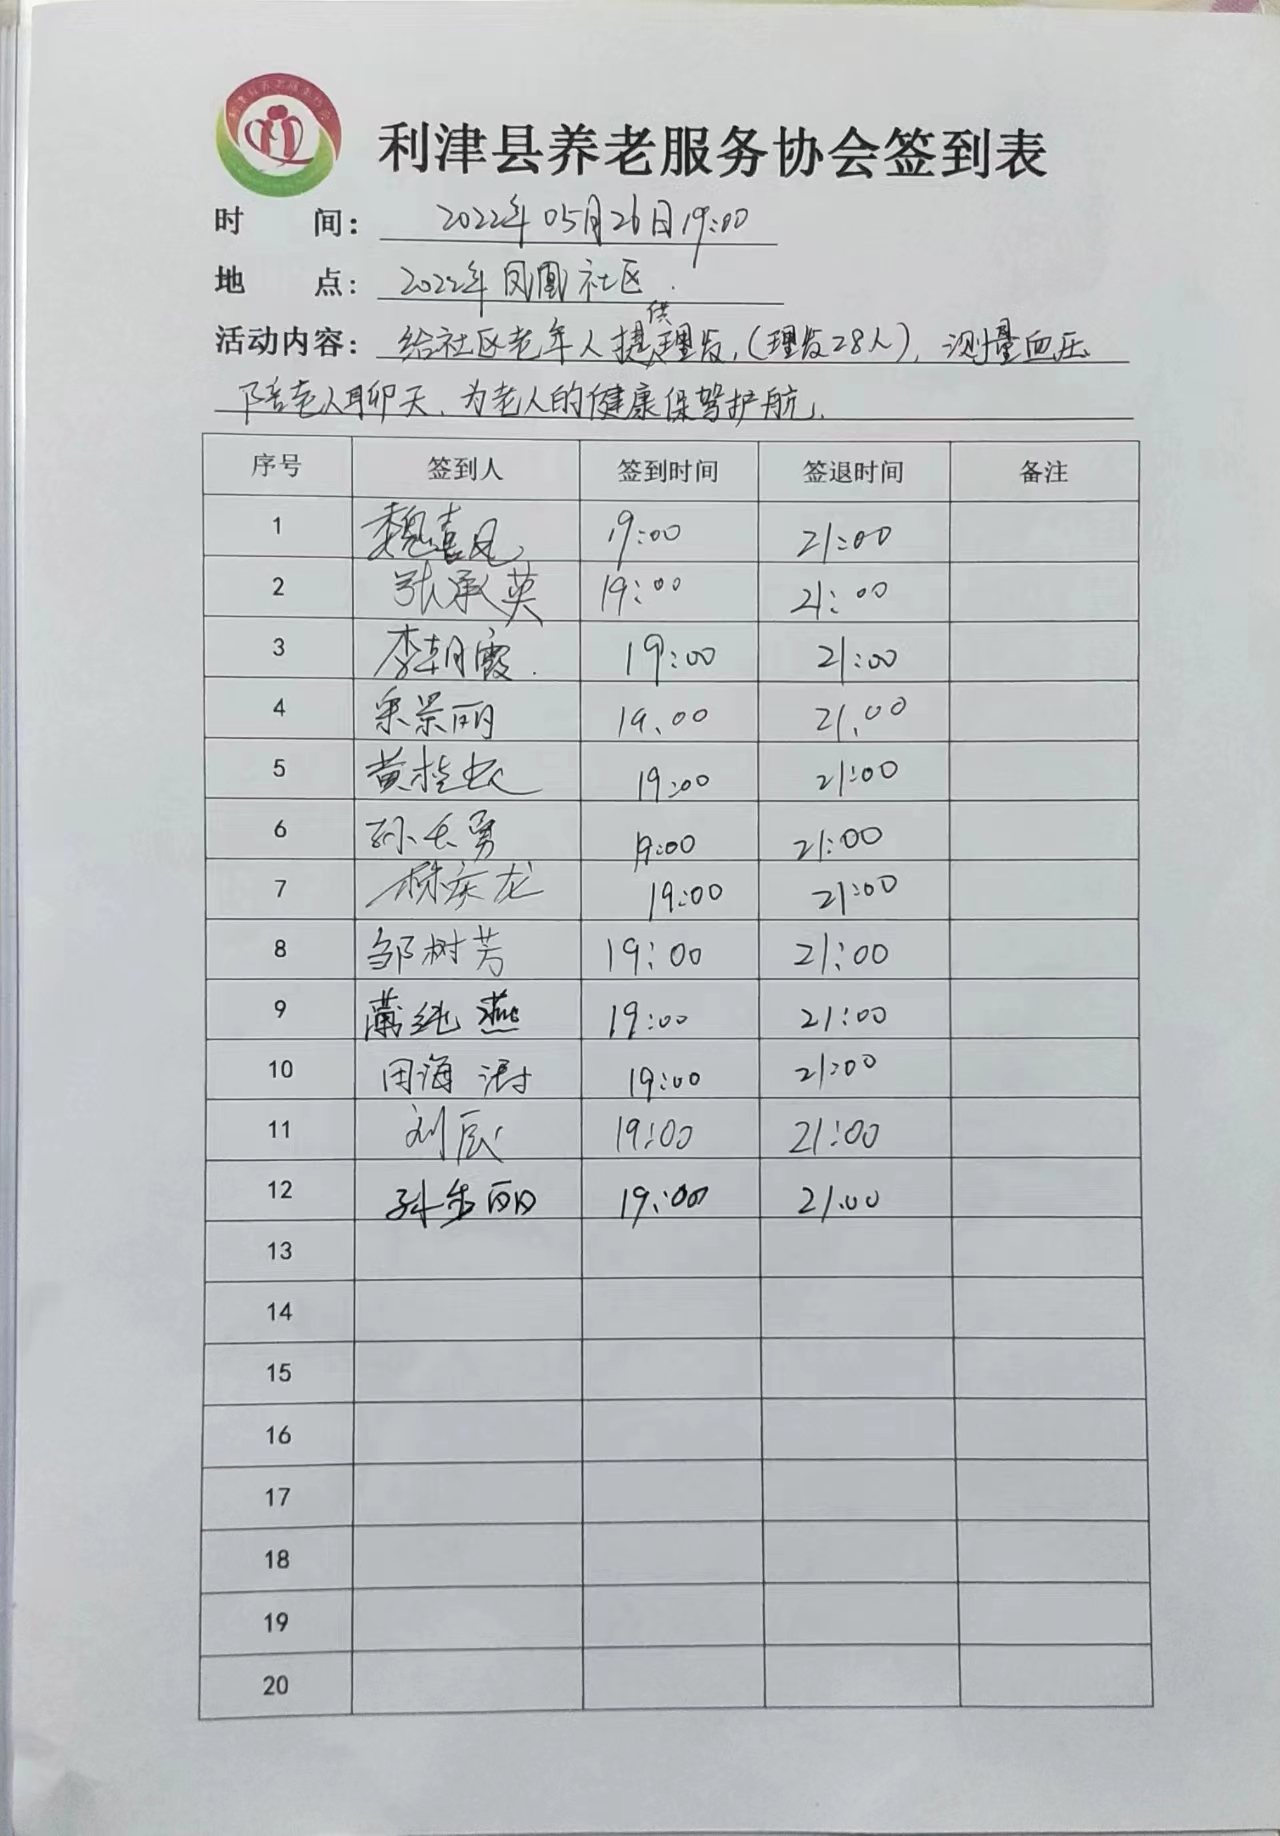 利津县养老服务协会签到表
时 间: 2022年05月26日19:00
地 点: 2022年凤凰社区.
活动内容: 给社区老年人提供理发,(理发28人), 测量血压
陪老人聊天、为老人的健康保驾护航」.
序号 签到人 签到时间 签退时间 备注
1 魏喜凤 19:00 21:00
2 张承英 19:00 21:00
3 李朝霞. 19:00 21:00
4 景丽 19.00 21.00
5 黄桂 19:00 21:00
6 孙长勇 19:00 21:00
7 庆龙 19:00 21:00
8 邹树芳 19:00 21:00
9 燕 19:00 21:00
10 海涛 19:00 21:00
11 刘辰 19:00 21:00
12 孙 丽 19:00 21.00
13
14
15
16
17
18
19
20